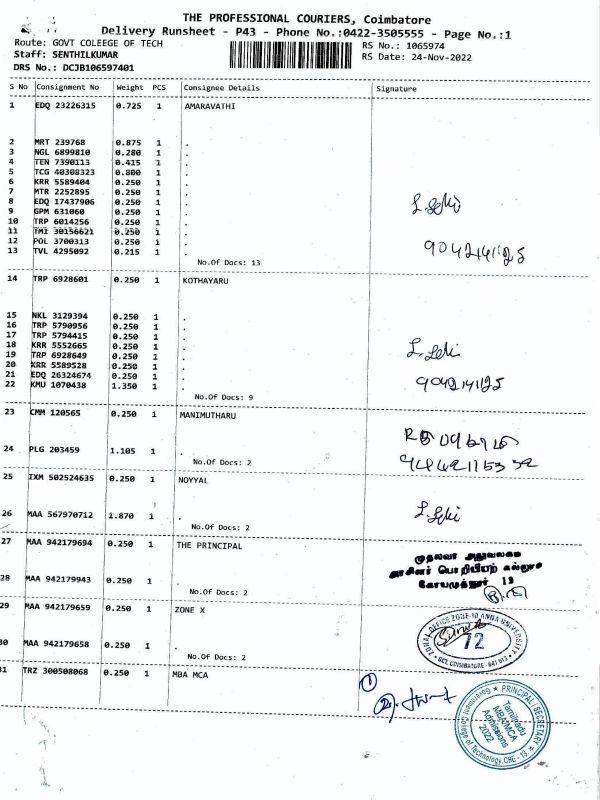 THE PROFESSIONAL COURIERS, Coimbatore
Delivery Runsheet - P43 - Phone No.:0422-3505555 - Page No.:1
Route: GOVT COLEEGE OF TECH
RS No.: 1065974
Staff: SENTHILKUMAR
RS Date: 24-Nov-2022
DRS No.: DCJB106597401
S No Consignment No Weight PCS Consignee Details Signature
1 EDQ 23226315 0.725 1 AMARAVATHI
2 MRT 239768 0.875 1 .
3 NGL 6899810 0.280 1 .
4 TEN 7390113 0.415 1 .
5 TCG 40308323 0.800 1 .
6 KRR 5589404 0.250 1 .
7 MTR 2252895 0.250 1 .
8 EDQ 17437906 0.250 1 .
9 GPM 631060 0.250 1 .
10 TRP 6014256 0.250 1 .
11 TMI 30156621 0.250 1 .
12 POL 3700313 0.250 1 .
13 TVL 4295092 0.215 1 .
No.Of Docs: 13
14 TRP 6928601 0.250 1 KOTHAYARU
15 NKL 3129394 0.250 1 .
16 TRP 5790956 0.250 1 .
17 TRP 5794415 0.250 1 .
18 KRR 5552665 0.250 1 .
19 TRP 6928649 0.250 1 .
20 KRR 5589528 0.250 1 .
21 EDQ 26324674 0.250 1 .
22 KMU 1070438 1.350 1 .
No.Of Docs: 9
23 CMM 120565 0.250 1 MANIMUTHARU
24 PLG 203459 1.105 1 .
No.Of Docs: 2
25 IXM 502524635 0.250 1 NOYYAL
26 MAA 567970712 1.870 1 .
No.Of Docs: 2
27 MAA 942179694 0.250 1 THE PRINCIPAL
28 MAA 942179943 0.250 1 .
No.Of Docs: 2
29 MAA 942179659 0.250 1 ZONE X
30 MAA 942179658 0.250 1 .
No.Of Docs: 2
31 TRZ 300508068 0.250 1 MBA MCA
முதல்வர் அலுவலகம்
கோயமுத்தூர் 13
ZONAL OFFICE ZONE-10 ANNA UNIVERSITY
72
GCT, COIMBATORE - 641 013
1
PRINCIPAL / SECRETARY
Government College of Technology, CBE - 13.
Tamilnadu
MBA/MCA
Admissions
2022